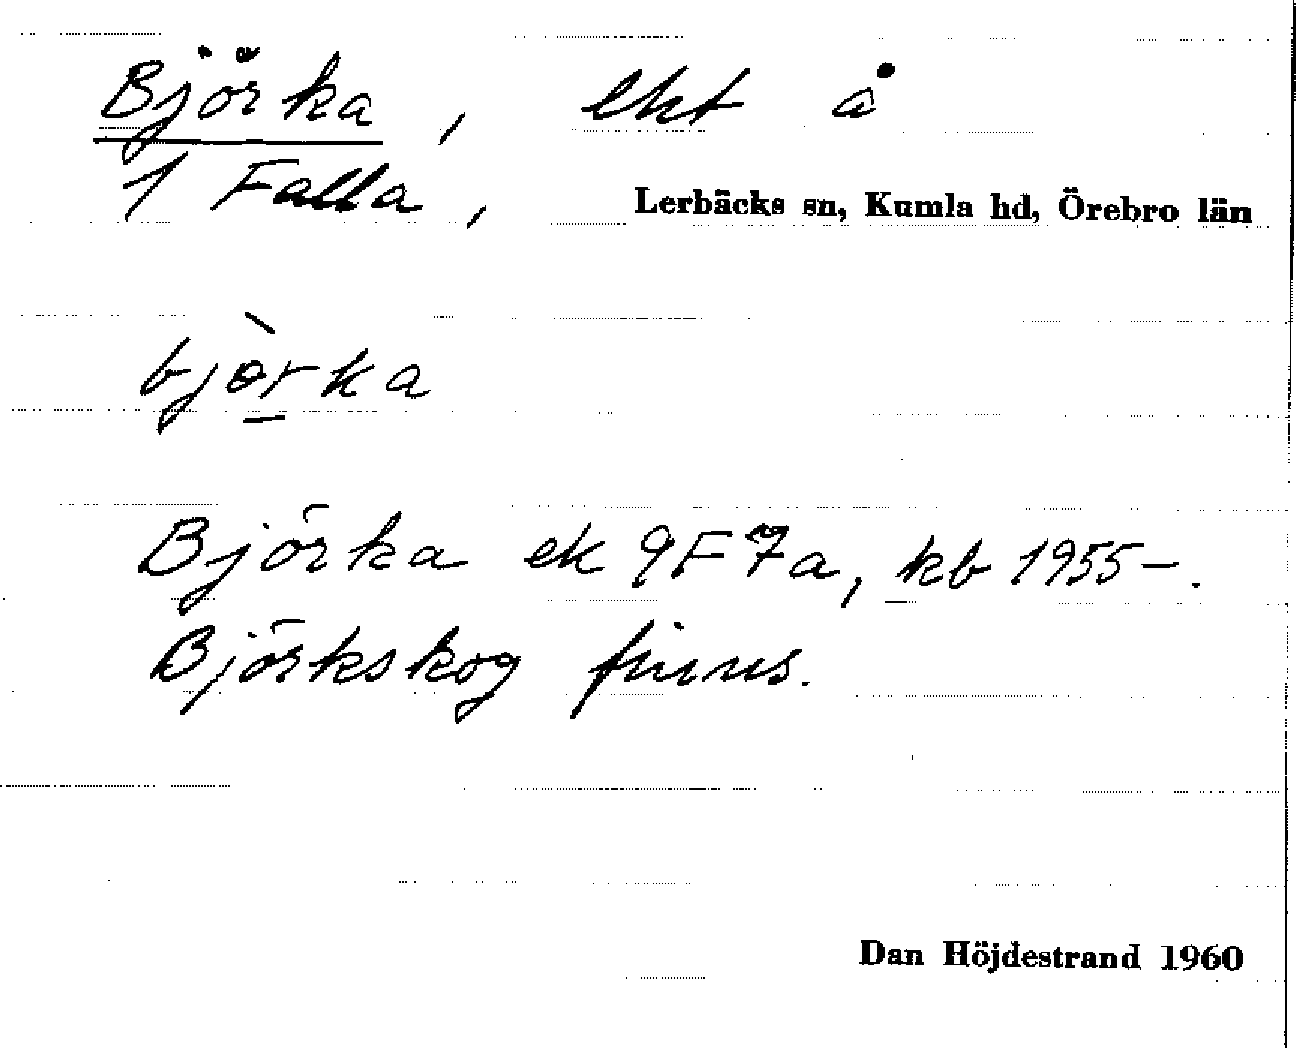 Björka, lht å
1 Falla, Lerbäcks sn, Kumla hd, Örebro län
bjò̱rka
Björka ek 9F7a, kb 1955-.
Björkskog finns.
Dan Höjdestrand 1960